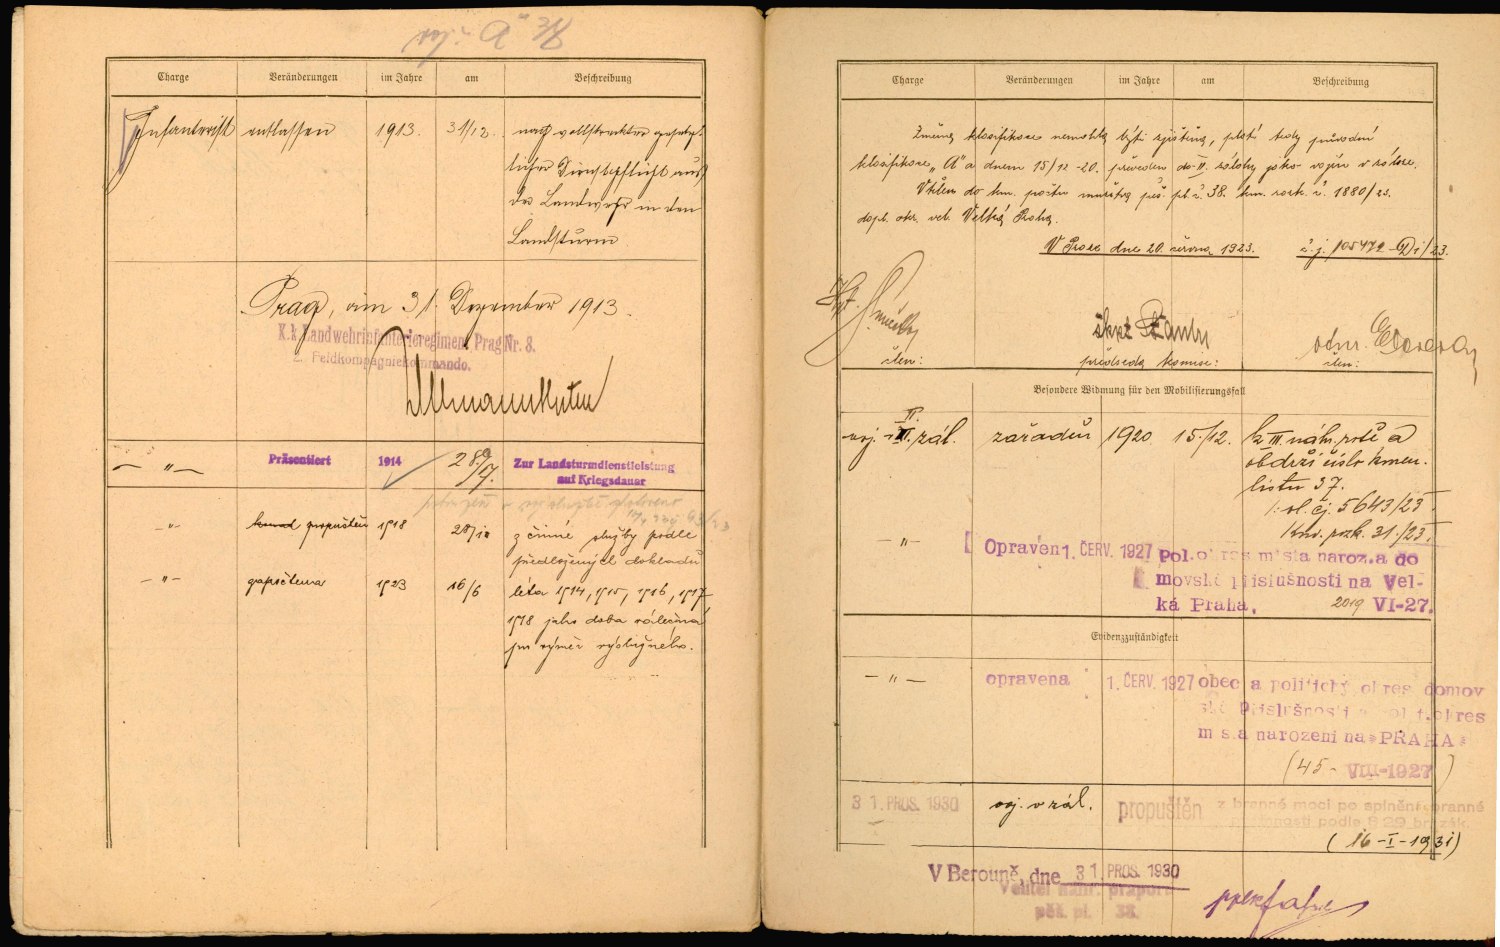 voj. „A" 
Charge Veränderungen im Jahre am Beschreibung
Infanterist entlassen 1913. 31/12. nach vollstreckter gesetz-
licher Dienstpflicht aus
der Landwehr in den
Landsturm
Prag, am 31. Dezember 1913.
K.k. Landwehrinfanterieregiment Prag Nr. 8.
2. Feldkompagniekommando.
— " — Präsentiert 1914 28/7. Zur Landsturmdienstleistung
auf Kriegsdauer
— " — propuštěn 1918 28/10 z činné služby podle
předložených dokladů
— " — započtena 1923 16/6 léta 1914, 1915, 1916, 1917
1918 jako doba válečná
pro výměr výslužného.
Charge Veränderungen im Jahre am Beschreibung
Změna klasifikace nemohla býti zjištěna, platí tedy původní
klasifikace „A" a dnem 15/12-20. převeden do II. zálohy jako vojín v záloze.
Vřaděn do km. počtu mužstva pěš. pl. č. 38. km. rozk. č. 1880/23.
dopl. okr. vel. Velká Praha.
V Praze dne 20. června 1923. č.j. 105472-Di/23.
člen: předseda komise: člen:
Besondere Widmung für den Mobilisierungsfall
II.
voj. v zál. zařaděn 1920 15./12. k III. náhr. rotě a
obdrží číslo kmen.
listu 37.
1: vl. čj. 5643/23 I.
Kmd. rozk. 31./23. I.
— " — Opraven 1. ČERV. 1927 pol. okres místa naroz. a do
movské příslušnosti na Vel-
ká Praha, 2019 VI-27.
Evidenzzuständigkeit
— " — opravena 1. ČERV. 1927 obec a politický okres domov
ské příslušnosti a polit. okres
místa narození na »PRAHA«
(45- VIII-1927)
31. PROS. 1930 voj. v zál. propuštěn z branné moci po splnění branné
povinnosti podle § 29 br. zák.
(16-I-1931)
V Berouně, dne 31. PROS. 1930
Velitel náhr. praporu
pěš. pl. 38.